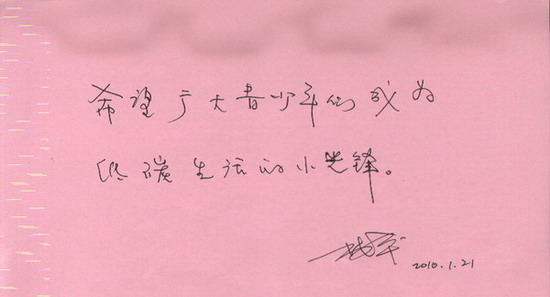 希望广大青少年们成为
低碳生活的小先锋。
2010.1.21